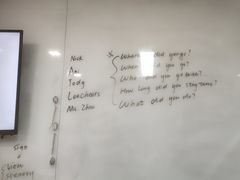 Nick
Ani
Jody
Lancheers
Ms. Zhou
Where did you go?
When did you go?
Who did you go with?
How long did you stay there?
What did you do?
Sign